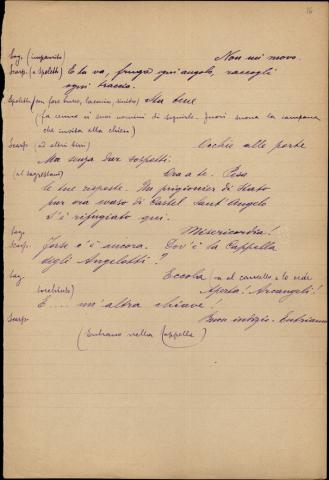 16
Sag. (impaurito) Non mi movo.
Scarp. (a Spoletti) E tu va, fruga ogni angolo, raccogli
ogni traccia.
Spoletti (con fare Ma bene
(fa cenno ai suoi uomini di seguirlo. fuori suona la campana
che invita alla chiesa)
Scarp. (ad altri birri) Occhio alle porte
Ma senza dar sospetti.
(al sagrestano) Ora a te. Pesa
le tue risposte. Un prigionier di Stato
pur ora evaso da Castel Sant'Angelo
s'è rifugiato qui.
Sag. Misericordia!
Scarp. Forse c'è ancora. Dov'è la Cappella
degli Angelotti?
Sag. Eccola (va al cancello e lo vede
socchiuso) Aperta! Arcangeli!
E.... un'altra chiave!
Scarp. Buon indizio. Entriamo
(Entrano nella Cappella)